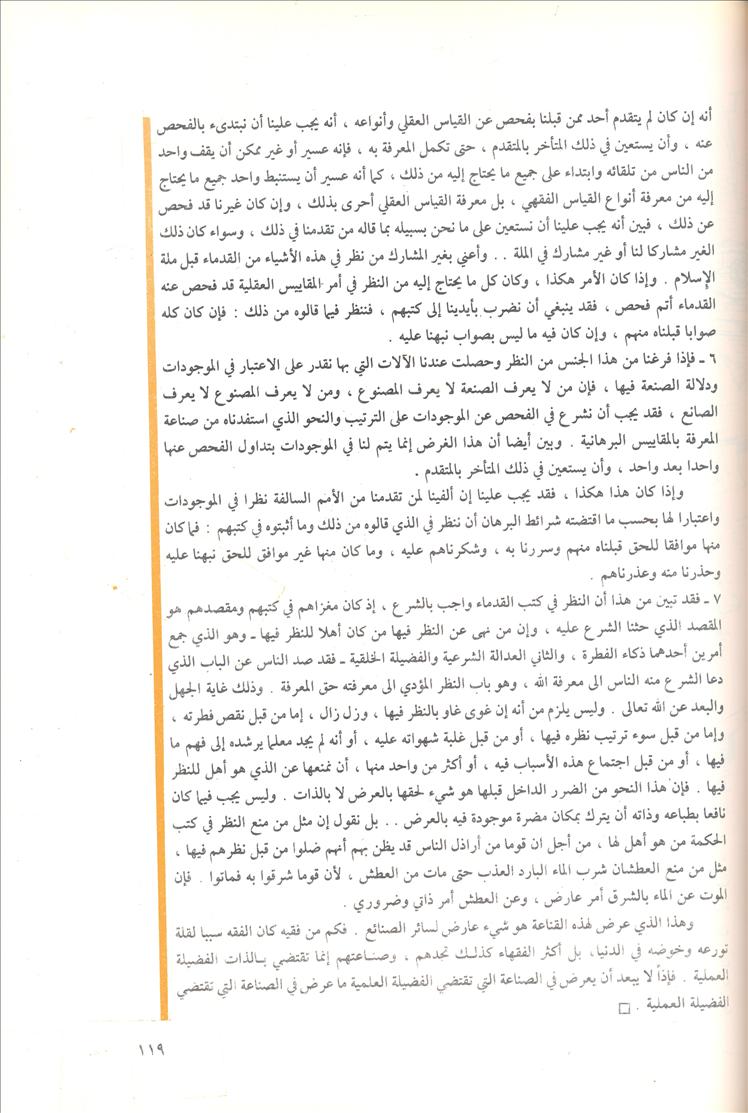 أنه إن كان لم يتقدم أحد ممن قبلنا بفحص عن القياس العقلي وأنواعه ، أنه يجب علينا أن نبتدىء بالفحص
عنه ، وأن يستعين في ذلك المتأخر بالمتقدم ، حتى تكمل المعرفة به ، فإنه عسير أو غير ممكن أن يقف واحد
من الناس من تلقائه وابتداء على جميع ما يحتاج إليه من ذلك ، كما أنه عسير أن يستنبط واحد جميع ما يحتاج
إليه من معرفة أنواع القياس الفقهي ، بل معرفة القياس العقلي أحرى بذلك ، وإن كان غيرنا قد فحص
عن ذلك ، فبين أنه يجب علينا أن نستعين على ما نحن بسبيله بما قاله من تقدمنا في ذلك ، وسواء كان ذلك
الغير مشاركا لنا أو غير مشارك في الملة . . وأعني بغير المشارك من نظر في هذه الأشياء من القدماء قبل ملة
الإسلام . وإذا كان الأمر هكذا ، وكان كل ما يحتاج إليه من النظر في أمر المقاييس العقلية قد فحص عنه
القدماء أتم فحص ، فقد ينبغي أن نضرب بأيدينا إلى كتبهم ، فننظر فيما قالوه من ذلك : فإن كان كله
صوابا قبلناه منهم ، وإن كان فيه ما ليس بصواب نبهنا عليه .
٦ ـ فإذا فرغنا من هذا الجنس من النظر وحصلت عندنا الآلات التي بها نقدر على الاعتبار في الموجودات
ودلالة الصنعة فيها ، فإن من لا يعرف الصنعة لا يعرف المصنوع ، ومن لا يعرف المصنوع لا يعرف
الصانع ، فقد يجب أن نشرع في الفحص عن الموجودات على الترتيب والنحو الذي استفدناه من صناعة
المعرفة بالمقاييس البرهانية . وبين أيضا أن هذا الغرض إنما يتم لنا في الموجودات بتداول الفحص عنها
واحدا بعد واحد ، وأن يستعين في ذلك المتأخر بالمتقدم .
وإذا كان هذا هكذا ، فقد يجب علينا إن ألفينا لمن تقدمنا من الأمم السالفة نظرا في الموجودات
واعتبارا لها بحسب ما اقتضته شرائط البرهان أن ننظر في الذي قالوه من ذلك وما أثبتوه في كتبهم : فما كان
منها موافقا للحق قبلناه منهم وسررنا به ، وشكرناهم عليه ، وما كان منها غير موافق للحق نبهنا عليه
وحذرنا منه وعذرناهم .
٧ ـ فقد تبين من هذا أن النظر في كتب القدماء واجب بالشرع ، إذ كان مغزاهم في كتبهم ومقصدهم هو
المقصد الذي حثنا الشرع عليه ، وإن من نهى عن النظر فيها من كان أهلا للنظر فيها ـ وهو الذي جمع
أمرين أحدهما ذكاء الفطرة ، والثاني العدالة الشرعية والفضيلة الخلقية ـ فقد صد الناس عن الباب الذي
دعا الشرع منه الناس الى معرفة الله ، وهو باب النظر المؤدي الى معرفته حق المعرفة . وذلك غاية الجهل
والبعد عن الله تعالى . وليس يلزم من أنه إن غوى غاو بالنظر فيها ، وزل زال ، إما من قبل نقص فطرته ،
وإما من قبل سوء ترتيب نظره فيها ، أو من قبل غلبة شهواته عليه ، أو أنه لم يجد معلما يرشده إلى فهم ما
فيها ، أو من قبل اجتماع هذه الأسباب فيه ، أو أكثر من واحد منها ، أن نمنعها عن الذي هو أهل للنظر
فيها . فإن هذا النحو من الضرر الداخل قبلها هو شيء لحقها بالعرض لا بالذات . وليس يجب فيما كان
نافعا بطباعه وذاته أن يترك بمكان مضرة موجودة فيه بالعرض . . بل نقول إن مثل من منع النظر في كتب
الحكمة من هو أهل لها ، من أجل ان قوما من أراذل الناس قد يظن بهم أنهم ضلوا من قبل نظرهم فيها ،
مثل من منع العطشان شرب الماء البارد العذب حتى مات من العطش ، لأن قوما شرقوا به فماتوا . فإن
الموت عن الماء بالشرق أمر عارض ، وعن العطش أمر ذاتي وضروري .
وهذا الذي عرض لهذه القناعة هو شيء عارض لسائر الصنائع . فكم من فقيه كان الفقه سببا لقلة
تورعه وخوضه في الدنيا، بل أكثر الفقهاء كذلك تجدهم ، وصناعتهم إنما تقتضي بالذات الفضيلة
العملية . فإذاً لا يبعد أن يعرض في الصناعة التي تقتضي الفضيلة العلمية ما عرض في الصناعة التي تقتضي
الفضيلة العملية . □
١١٩